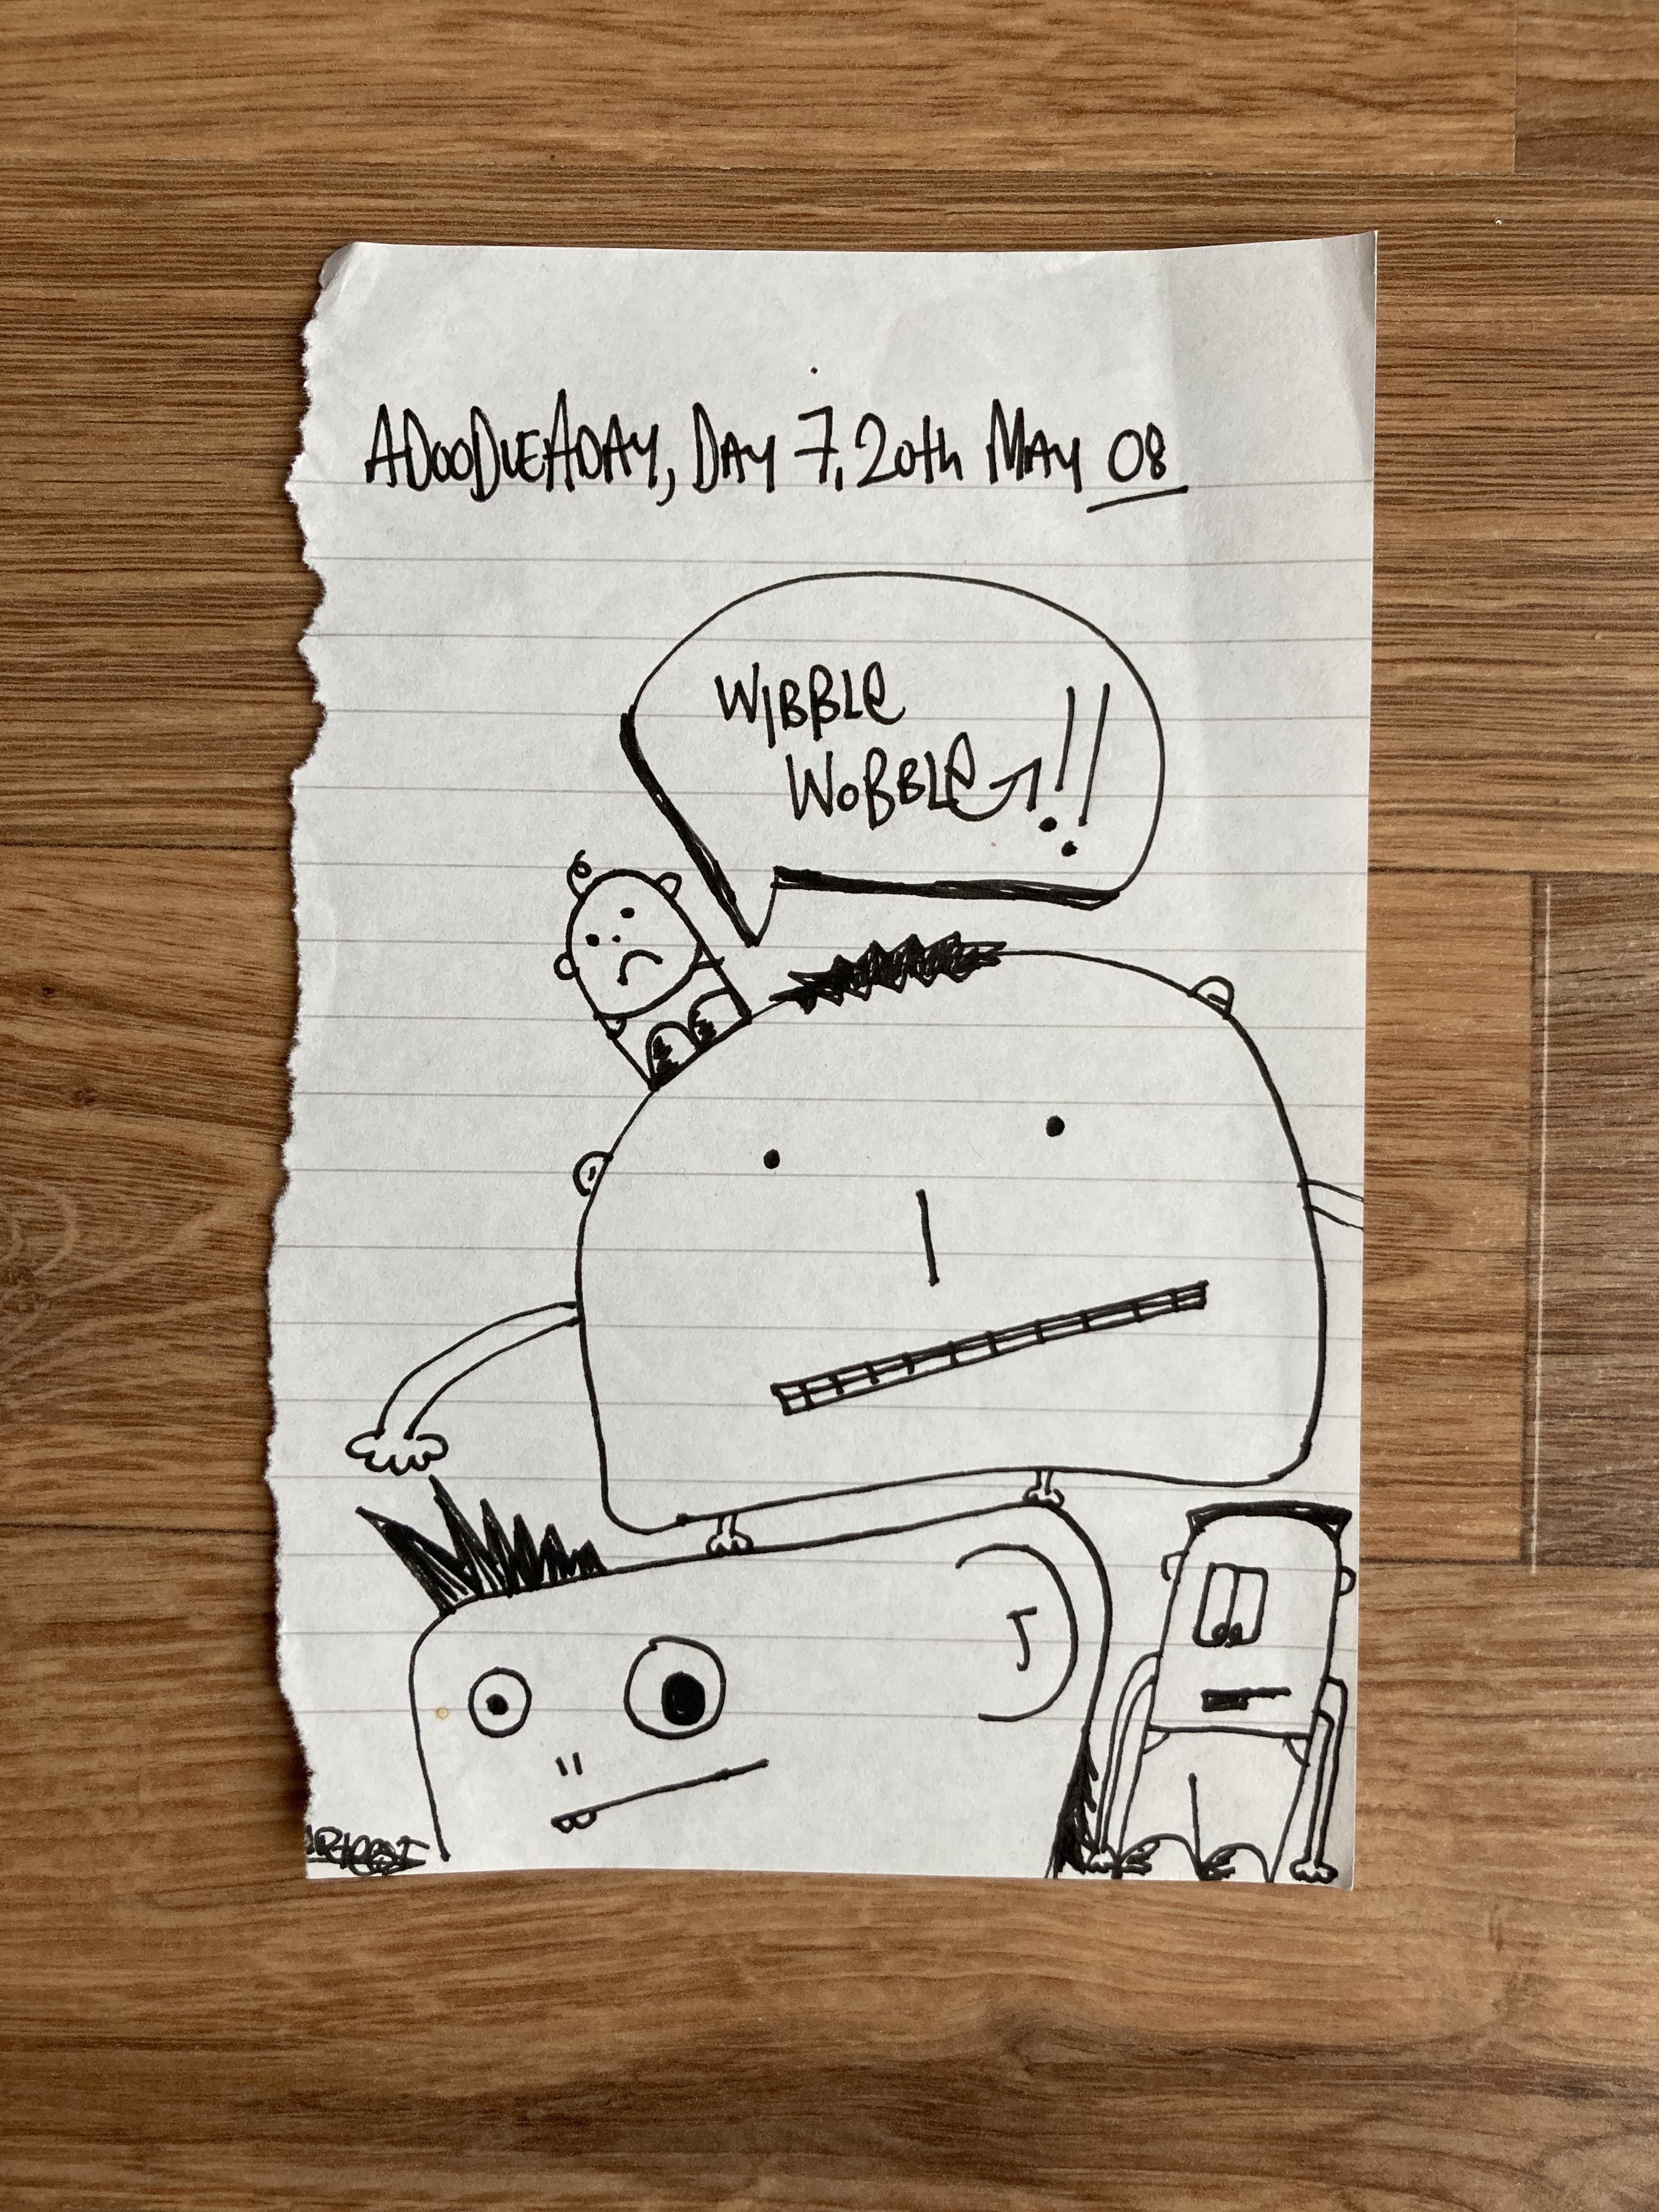 ADOODLEADAY, DAY 7, 20th MAY 08
WIBBLE
WOBBLE!!